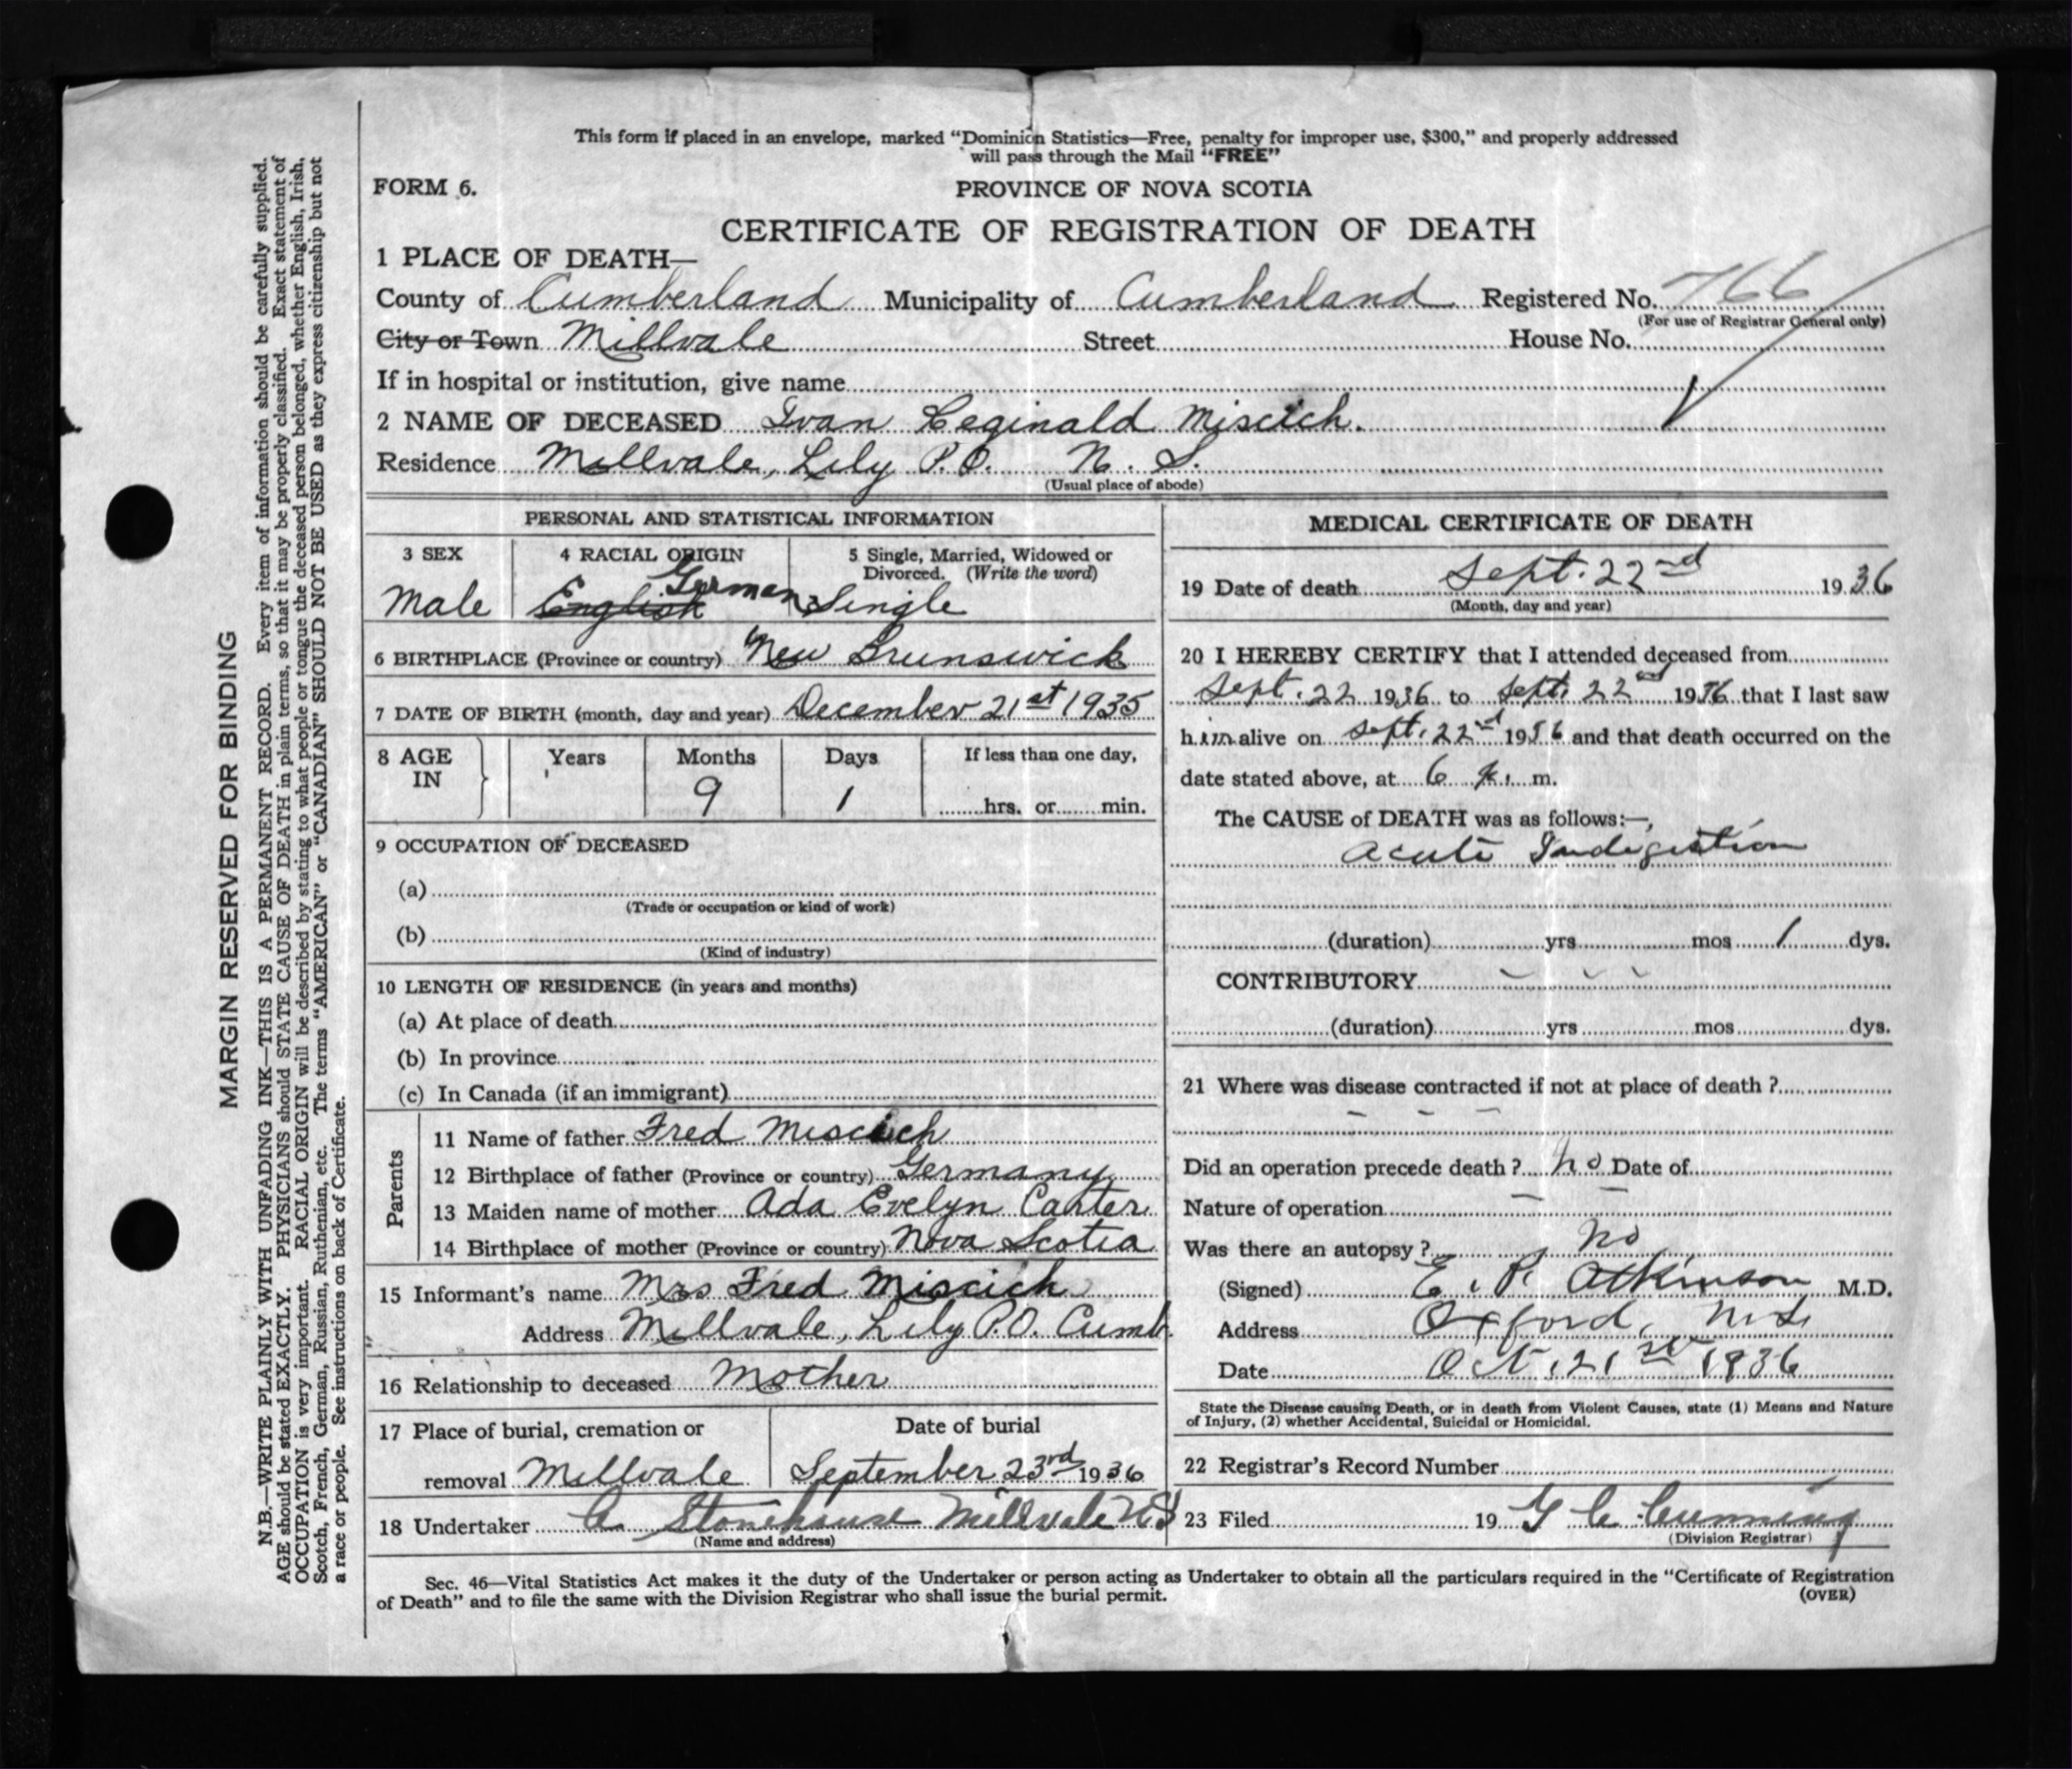 This form if placed in an envelope, marked "Dominion Statistics—Free, penalty for improper use, $300," and properly addressed
will pass through the Mail "FREE"
FORM 6.
PROVINCE OF NOVA SCOTIA
CERTIFICATE OF REGISTRATION OF DEATH
1 PLACE OF DEATH—
County of Cumberland Municipality of Cumberland Registered No. 766
(For use of Registrar General only)
City or Town Millvale Street House No.
If in hospital or institution, give name
2 NAME OF DECEASED Ivan Reginald Miscich.
Residence Millvale, Lily P.O. N. S.
(Usual place of abode)
PERSONAL AND STATISTICAL INFORMATION
3 SEX
Male
4 RACIAL ORIGIN
English German
5 Single, Married, Widowed or
Divorced. (Write the word)
Single
6 BIRTHPLACE (Province or country) New Brunswick
7 DATE OF BIRTH (month, day and year) December 21st 1935
8 AGE IN
Years Months Days If less than one day,
9 1 hrs. or min.
9 OCCUPATION OF DECEASED
(a)
(Trade or occupation or kind of work)
(b)
(Kind of industry)
10 LENGTH OF RESIDENCE (in years and months)
(a) At place of death
(b) In province
(c) In Canada (if an immigrant)
Parents
11 Name of father Fred Miscich
12 Birthplace of father (Province or country) Germany
13 Maiden name of mother Ada Evelyn Carter
14 Birthplace of mother (Province or country) Nova Scotia
15 Informant's name Mrs Fred Miscich
Address Millvale, Lily P.O. Cumb.
16 Relationship to deceased Mother
17 Place of burial, cremation or
removal Millvale
Date of burial
September 23rd 1936
18 Undertaker A. Stonehouse Millvale NS
(Name and address)
MEDICAL CERTIFICATE OF DEATH
19 Date of death Sept. 22nd 1936
(Month, day and year)
20 I HEREBY CERTIFY that I attended deceased from
Sept. 22 1936 to Sept. 22nd 1936 that I last saw
him alive on Sept. 22nd 1936 and that death occurred on the
date stated above, at 6 m.
The CAUSE of DEATH was as follows:—
Acute Indigestion
(duration) yrs mos 1 dys.
CONTRIBUTORY
(duration) yrs mos dys.
21 Where was disease contracted if not at place of death ?
Did an operation precede death ? No Date of
Nature of operation
Was there an autopsy ? No
(Signed) E. P. Atkinson M.D.
Address Oxford, N.S.
Date Oct. 21st 1936
State the Disease causing Death, or in death from Violent Causes, state (1) Means and Nature
of Injury, (2) whether Accidental, Suicidal or Homicidal.
22 Registrar's Record Number
23 Filed 19 G C Cumming
(Division Registrar)
Sec. 46—Vital Statistics Act makes it the duty of the Undertaker or person acting as Undertaker to obtain all the particulars required in the "Certificate of Registration
of Death" and to file the same with the Division Registrar who shall issue the burial permit.
(OVER)
MARGIN RESERVED FOR BINDING
N.B.—WRITE PLAINLY WITH UNFADING INK—THIS IS A PERMANENT RECORD. Every item of information should be carefully supplied.
AGE should be stated EXACTLY. PHYSICIANS should STATE CAUSE OF DEATH in plain terms, so that it may be properly classified. Exact statement of
OCCUPATION is very important. RACIAL ORIGIN will be described by stating to what people or tongue the deceased person belonged, whether English, Irish,
Scotch, French, German, Russian, Ruthenian, etc. The terms "AMERICAN" or "CANADIAN" SHOULD NOT BE USED as they express citizenship but not
a race or people. See instructions on back of Certificate.